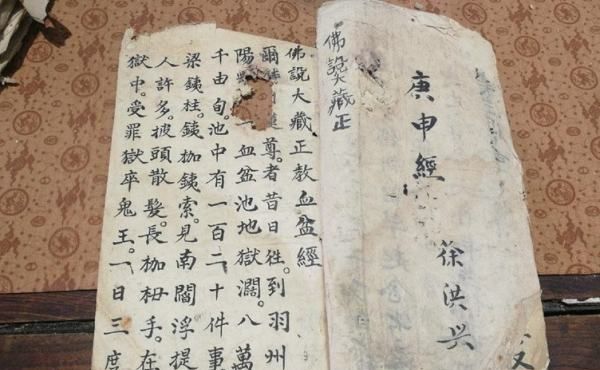 庚申經
徐洪兴
佛說大藏正
佛說大藏正教血盆經
爾尊。者昔日往。到羽州
陽一血盆池地獄濶。八萬
千由旬。池中有一百二十件事
梁銕柱。銕枷銕索。見南閻浮提
人許多。披頭散髮。長枷杻手。在
獄中。受罪獄卒鬼王。一日三度